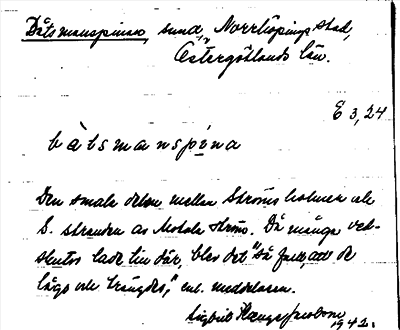 Båtsmanspinan, sund, Norrköpings stad,
Östergötlands län.
E 3,24
båtsmanspina
Den smala delen mellan Strömsholmen och
S. stranden av Motala ström. Då många ved-
skutor lade till där, blev det "så fullt, att de
lågo och trängdes", enl. meddelaren.
Sigbrit
1942.